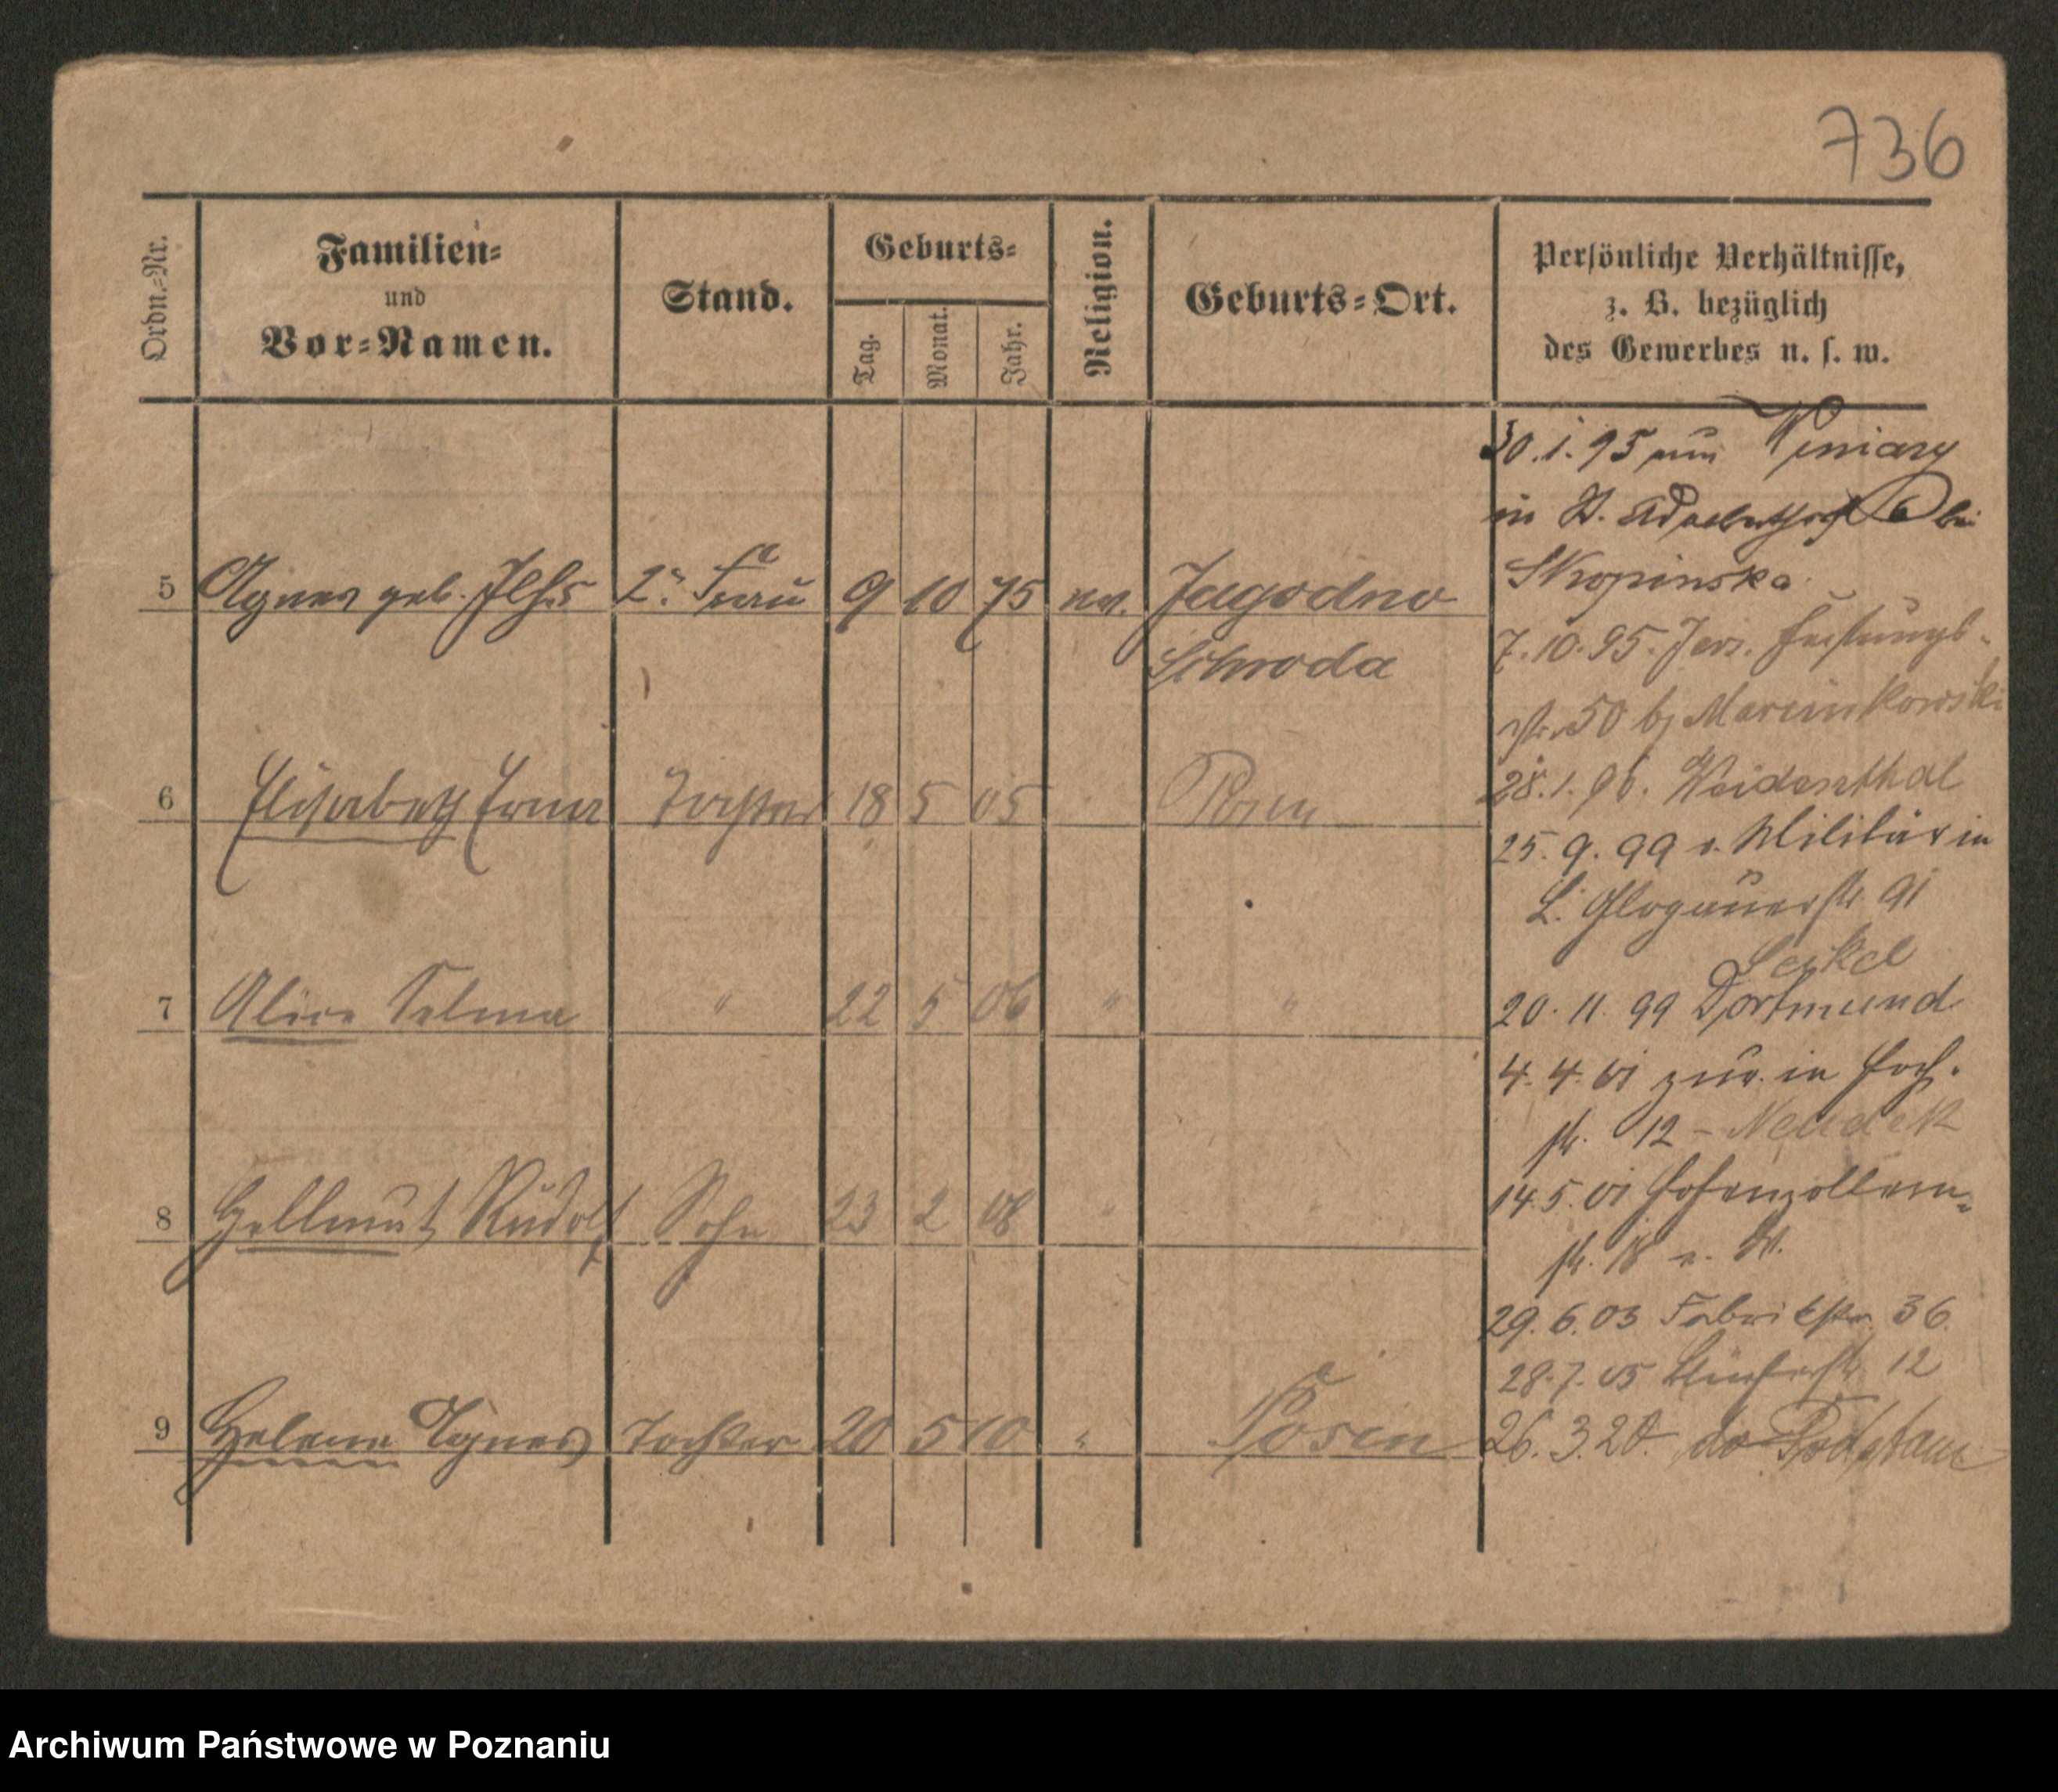 736
Ordn.-Nr.
Familien-
und
Vor-Namen.
Stand.
Geburts-
Tag.
Monat.
Jahr.
Religion.
Geburts-Ort.
Persönliche Verhältnisse,
z. B. bezüglich
des Gewerbes u. s. w.
5 Agnes geb. 2. Frau 9 10 75 ev. Jagodno
Schroda
6 Elisabeth Erna Tochter 18 5 05 Posen
7 Alice Selma " 22 5 06 " "
8 Hellmut Rudolf Sohn 23 2 08 " "
9 Helene Agnes Tochter 20 5 10 " Posen
30.1.95 Winiary
in St. 6 bei
Skopinska
7.10.95. Jers. Festungs-
str. 50 b/ Marcinkowski
28.1.96. Weidenthal
25.9.99 v. Militär in
L. Glogauerstr. 91
20.11.99 Dortmund
4.4.01 zur. in
str. 12 - Neudek
14.5.01 Hohenzollern-
str. 18
29.6.03 Fabrikstr. 36.
28.7.05 12
26.3.20.
Archiwum Państwowe w Poznaniu